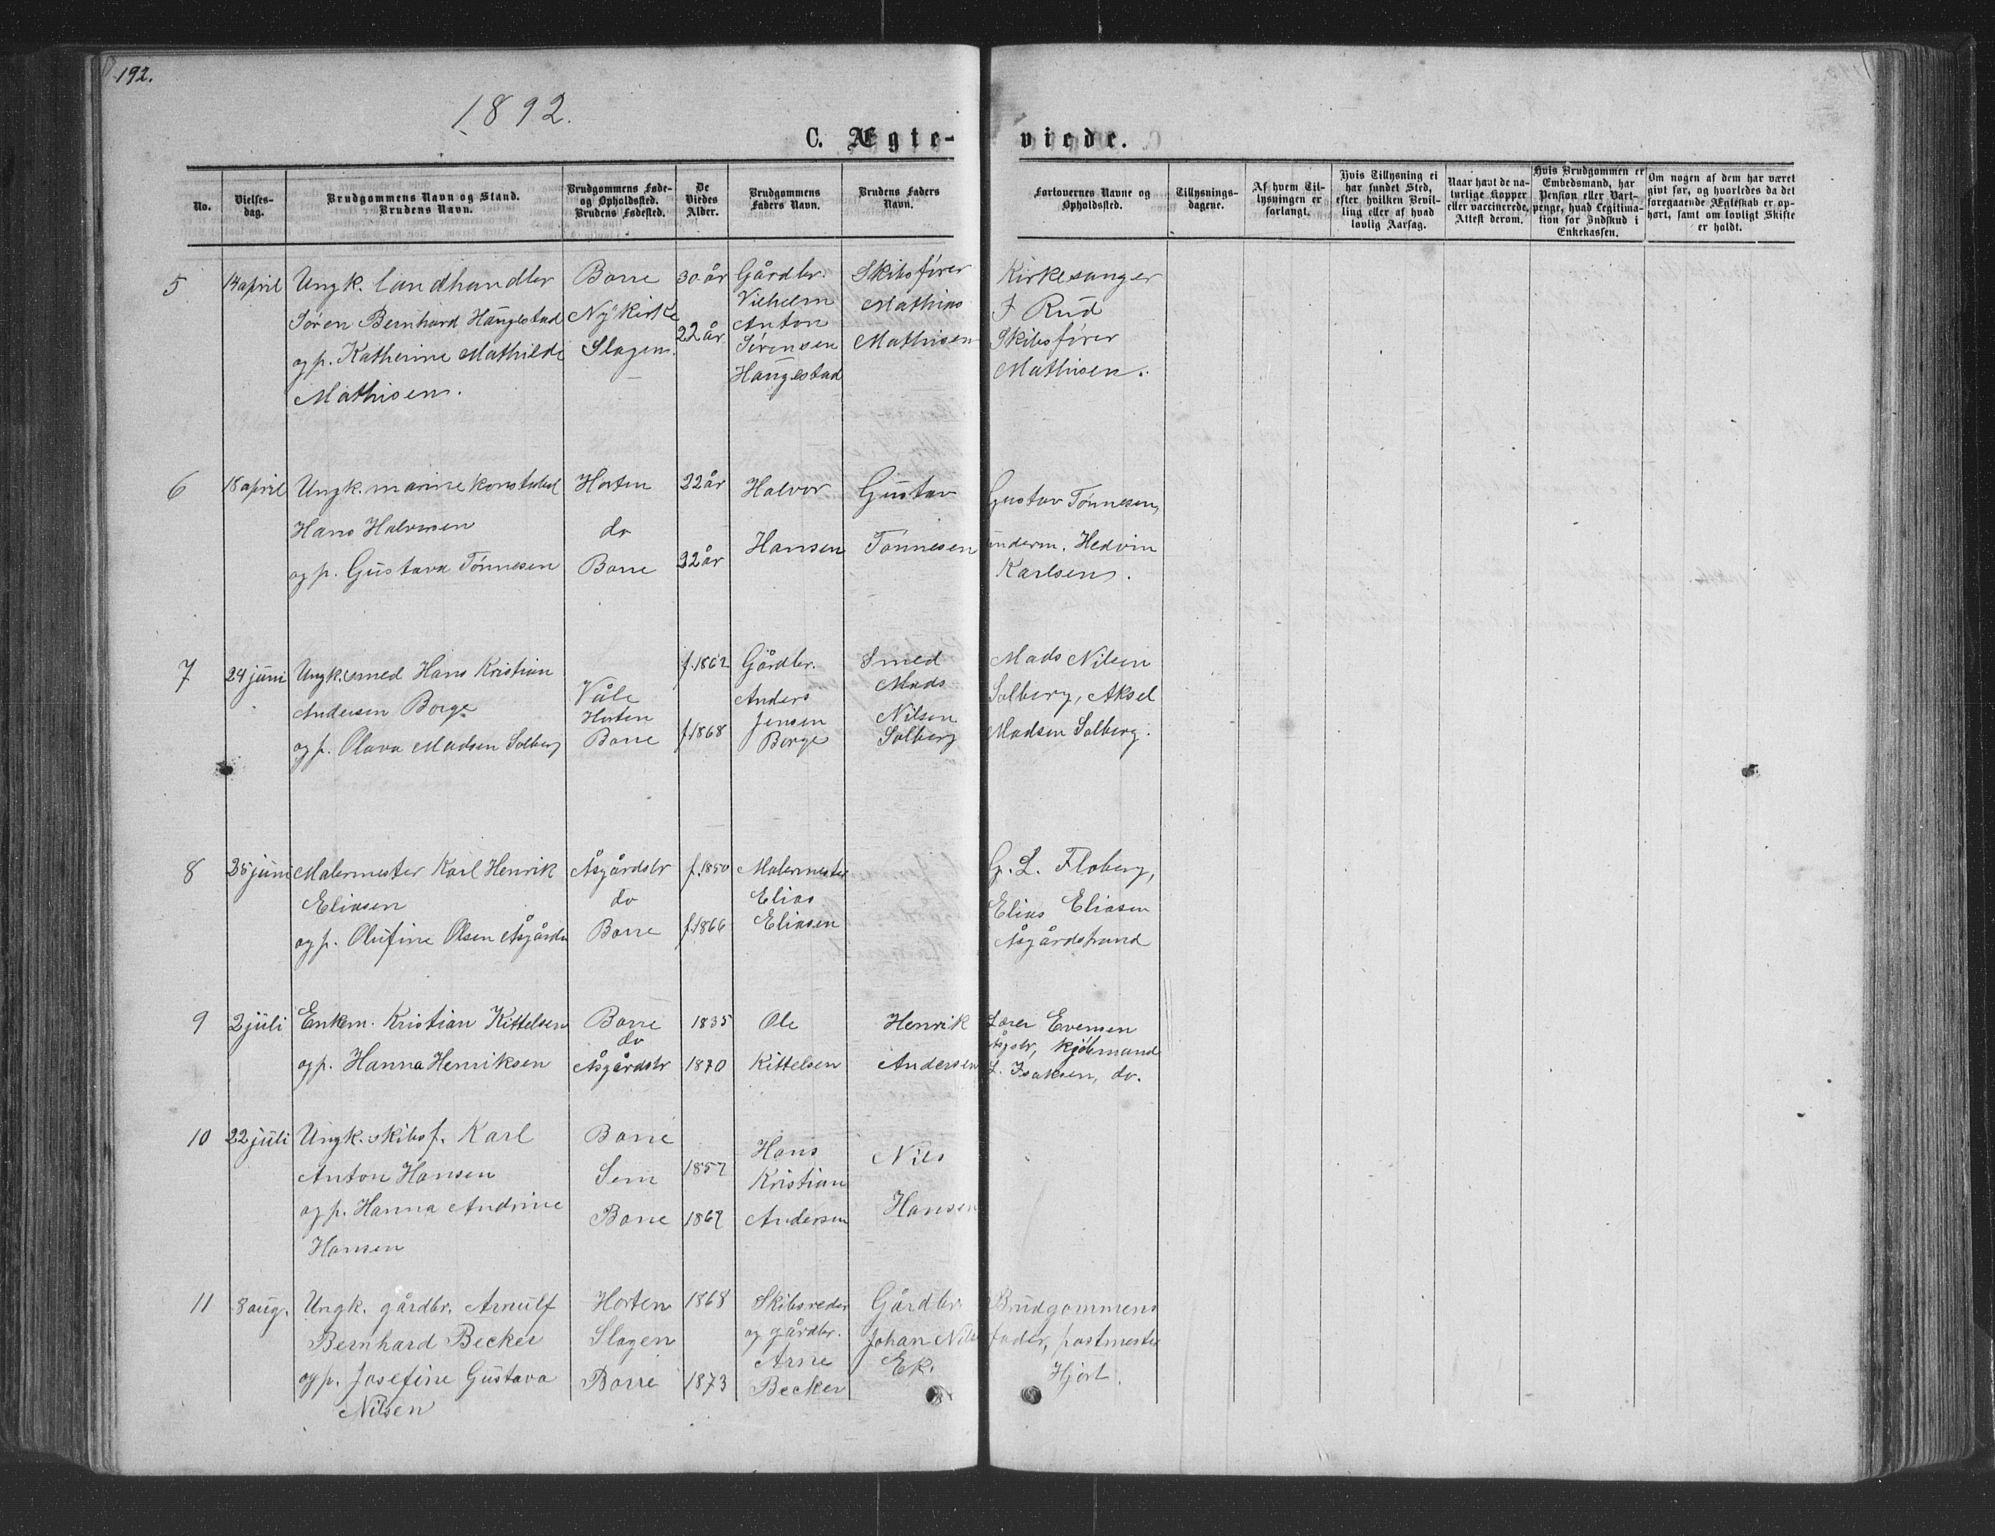 192.
1892.
C. Ægte-
viede.
No.
Vielses-
dag.
Brudgommens Navn og Stand.
Brudens Navn.
Brudgommens Føde-
og Opholdssted.
Brudens Fødested.
De
Viedes
Alder.
Brudgommens
Faders Navn.
Brudens Faders
Navn.
Forlovernes Navne og
Opholdssted.
Tillysnings-
dagene.
Af hvem Til-
lysningen er
forlangt.
Hvis Tillysning ei
har fundet Sted,
efter hvilken Bevil-
ling eller af hvad
lovlig Aarsag.
Naar havt de na-
turlige Kopper
eller vaccinerede,
Attest derom.
Hvis Brudgommen er
Embedsmand, har
Pension eller Vart-
penge, hvad Legitima-
tion for Indskud i
Enkekassen.
Om nogen af dem har været
gift før, og hvorledes da det
foregaaende Ægteskab er op-
hørt, samt om lovligt Skifte
er holdt.
5
14 april
Ungk. landhandler
Søren Bernhard Haugestad
og p. Katherine Mathilde
Mathisen.
Borre
Nykirke
Slagen
30 år
22 år
Gårdbr.
Vilhelm
Anton
Sørensen
Haugestad
Skibsfører
Mathias
Mathisen
Kirkesanger
F Rud
Skibsfører
Mathisen.
6
18 april
Ungk. marinekonstabel
Hans Halvorsen
og p. Gustava Tönnesen
Horten
do
Borre
22 år
22 år
Halvor
Hansen
Gustav
Tönnesen
Gustav Tönnesen,
underm. Hedvin
Karlsen.
7
24 juni
Ungk. smed Hans Kristian
Andersen Borge
og p. Olava Madsen Solberg
Våle
Horten
Borre
f. 1862
f. 1868
Gårdbr.
Anders
Jensen
Borge
Smed
Mads
Nilsen
Solberg
Mads Nilsen
Solberg, Aksel
Madsen Solberg.
8
25 juni
Malermester Karl Henrik
Eliasen
og p. Olufine Olsen Åsgårds
Åsgårdstr
do
Borre
f. 1850
f. 1866
Malermester
Elias
Eliasen
G. L. Floberg,
Elias Eliasen
Åsgårdstrand
9
2 juli
Enkem. Kristian Kittelsen
og p. Hanna Henriksen
Borre
do
Åsgårdstr
1835
1870
Ole
Kittelsen
Henrik
Andersen
Lærer Evensen
Åsgstr, kjøbmand
L. Isaksen, do.
10
22 juli
Ungk. skibsf. Karl
Anton Hansen
og p. Hanna Andrine
Hansen
Borre
Sem
Borre
1857
1867
Hans
Kristian
Andersen
Nils
Hansen
11
8 aug.
Ungk. gårdbr. Arnulf
Bernhard Becker
og p. Josefine Gustava
Nilsen
Horten
Slagen
Borre
1868
1873
Skibsreder
og gårdbr.
Arne
Becker
Gårdbr
Johan Nils
Ek.
Brudgommens
fader, postmester
Hjort.